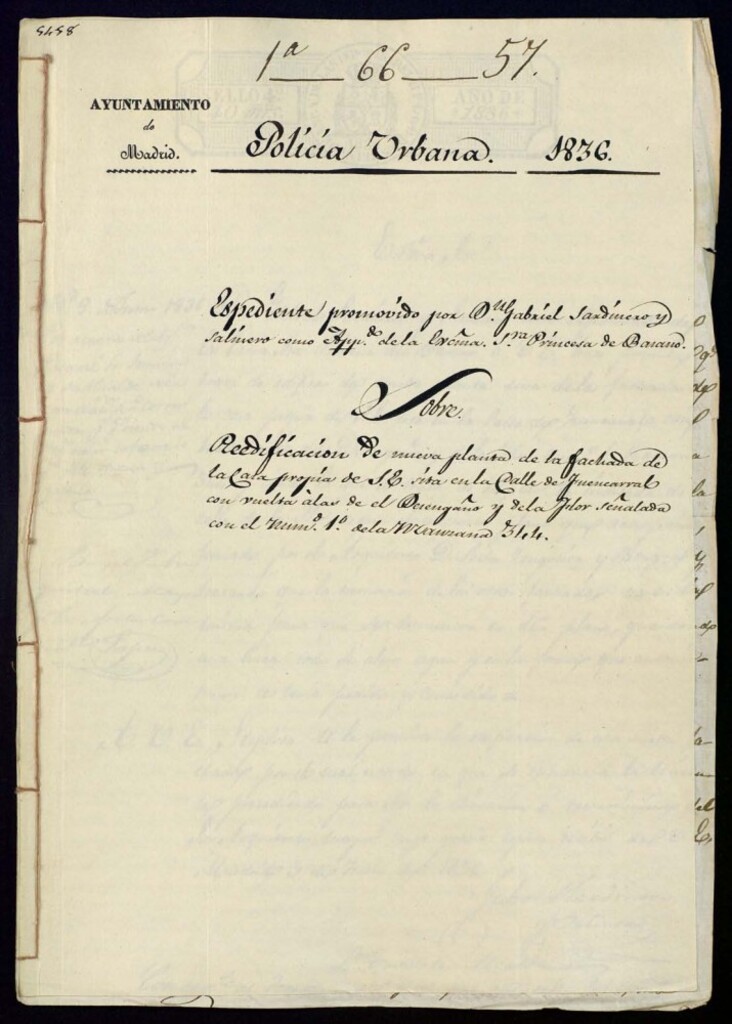 5458
1ª 66 57.
AYUNTAMIENTO
de
Madrid.
Policía Urbana. 1836.
Espediente promovido por Dn. Gabriel Sardinero y
Salinero como App.do de la Excma. Sra. Princesa de
Sobre
Reedificacion de nueva planta de la fachada de
la Casa propia de S.E. sita en la Calle de Fuencarral
con vuelta à las de el Desengaño y de la Flor señalada
con el Num.º 1.º de la Manzana 344.